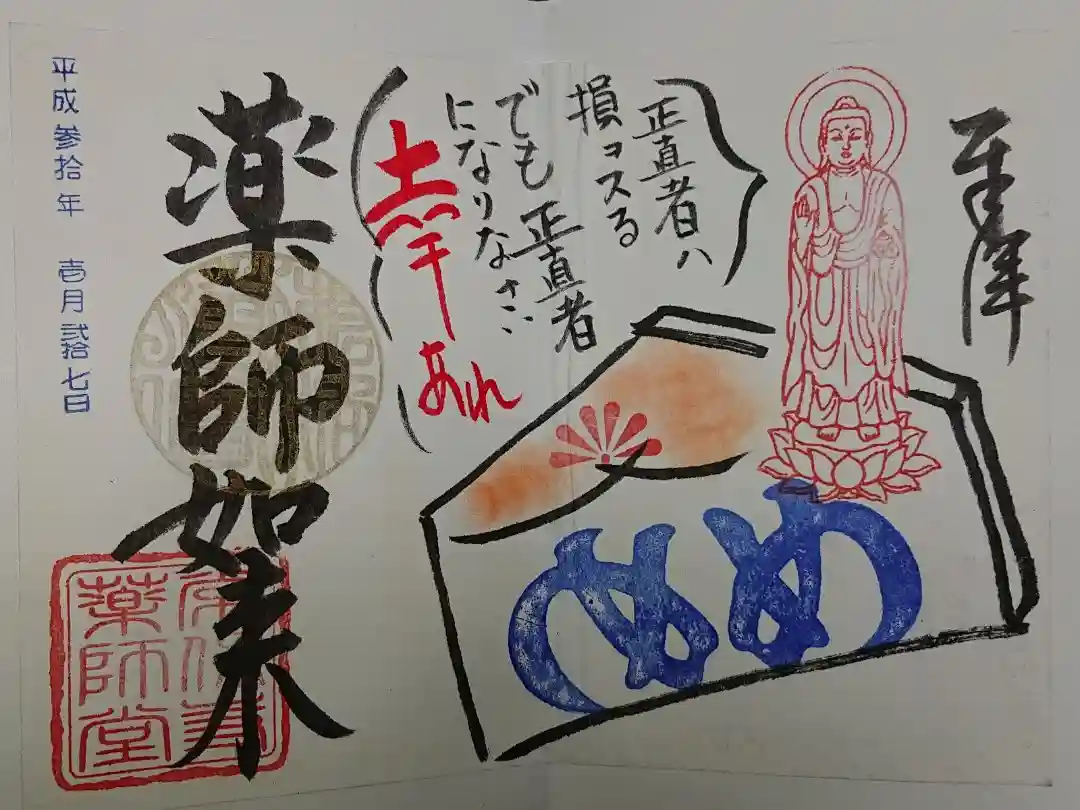 奉拝
正直者ハ
損ヲスる
でも正直者
になりなさい
幸あれ
めめ
薬師如来
薬師堂
平成参拾年 壱月弐拾七日